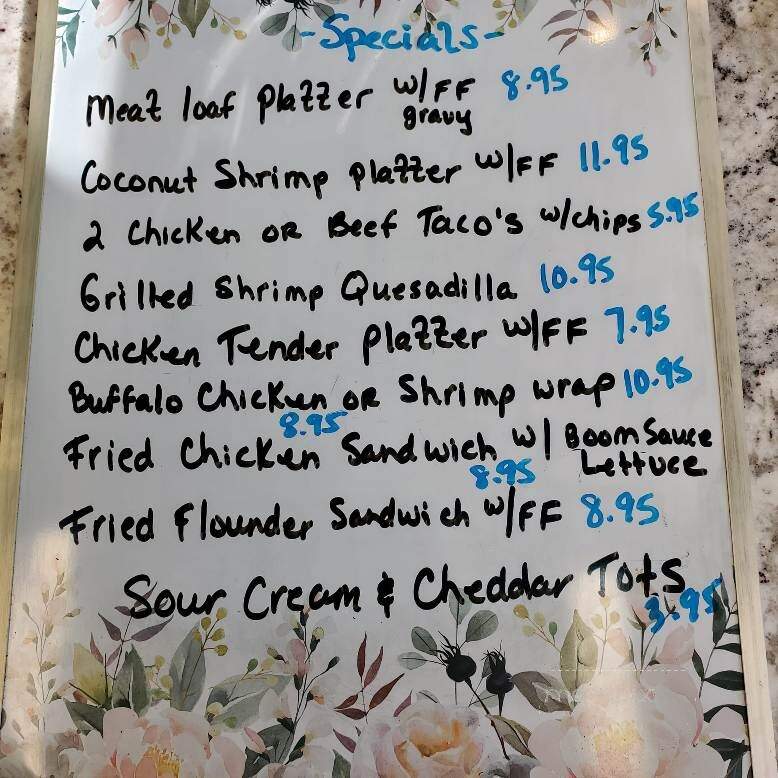 -Specials-
Meat loaf Platter w/FF 8.95
gravy
Coconut Shrimp Platter w/FF 11.95
2 Chicken OR Beef Taco's w/chips 5.95
Grilled Shrimp Quesadilla 10.95
Chicken Tender Platter w/FF 7.95
Buffalo Chicken OR Shrimp wrap 10.95
8.95
Fried Chicken Sandwich w/ Boom Sauce
Lettuce
8.95
Fried Flounder Sandwich w/FF 8.95
Sour Cream & Cheddar Tots
3.95